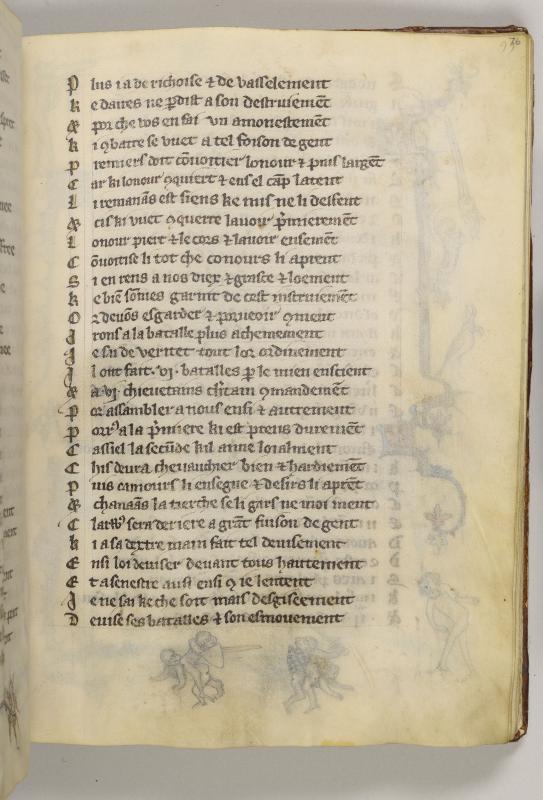 36
P lus i a de richoise ⁊ de vasselement
k e daires ne ꝑdist a son destruiement
⁊ por che vos en fai un amonestement
k i ꝯbatre se vuet a tel foison de gent
p remiers doit cōuoitier lonour ⁊ puis largēt
C ar ki lonour ꝯquiert ⁊ ensel cāp latent
L i remanās est siens ke nus ne li desfent
⁊ cis ki vuet ꝯquerre lavoir pͥmieremēt
L onour piert ⁊ le cors ⁊ lavoir ensement
C ōuoitise li tot che conours li aprent
S i en rens a nos diex ⁊ grasce ⁊ loement
k e biē somes garnit de cest instruiement
O r deuōs esgarder ⁊ porveoir ꝯment
J rons a la batalle plus achemement
J e sui de veritet tout lor ordinement
J l ont fait .vj. batalles ꝑ le mien enscient
⁊ a .vj. chieuetains ꝯmandement
P or assambler a nous ensi ⁊ autrement
P a la pͥmiere ki est durement
C assiel la secūde kil anne loialment
C his deura cheuauchier bien ⁊ hardiemēt
P uis li ensegne ⁊ desirs li aprēt
⁊ chanaās la tierche se li gars ne moi ment
C larꝯ sera deriere a grāt fuison de gent
k i a sa dextre main fait tel deuisement
E nsi loi deuiser deuant tous hautement
E t a senestre ausi ensi ꝯ ie lentent
J e ne sai ke che soit mais desgiseement
D evise ses batalles ⁊ son esmouement